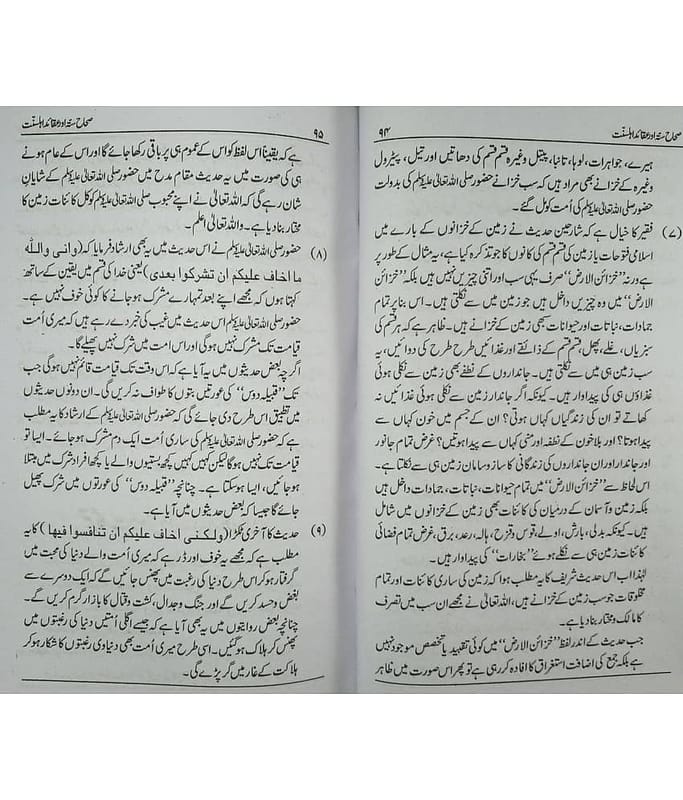 ۹۴ صحاح ستہ اور عقائد اہلسنّت
ہیرے، جواہرات، لوہا، تانبا، پیتل وغیرہ قسم قسم کی دھاتیں اور تیل، پیٹرول
وغیرہ کے خزانے بھی مراد ہیں کہ سب خزانے حضور صلی اللہ تعالیٰ علیہ وسلم کی بدولت
حضور صلی اللہ تعالیٰ علیہ وسلم کی اُمت کو مل گئے۔
(۷) فقیر کا خیال ہے کہ شارحین حدیث نے زمین کے خزانوں کے بارے میں
اسلامی فتوحات یا زمین کی قسم قسم کی کانوں کا جو تذکرہ کیا ہے، یہ مثال کے طور پر
ہے ورنہ ’’خزائن الارض‘‘ صرف یہی سب اور اتنی چیزیں نہیں ہیں بلکہ ’’خزائن
الارض‘‘ میں وہ چیزیں داخل ہیں جو زمین میں سے نکلتی ہیں۔ اس بنا پر تمام
جمادات، نباتات اور حیوانات سبھی زمین کے خزانے ہیں۔ ظاہر ہے کہ ہر قسم کی
سبزیاں، غلے، پھل، قسم قسم کے ذائقے اور غذائیں طرح طرح کی دوائیں، یہ
سب زمین ہی میں سے نکلتی ہیں۔ جانداروں کے نطفے بھی زمین سے نکلی ہوئی
غذاؤں ہی کی پیداوار ہیں۔ کیونکہ اگر جاندار زمین سے نکلی ہوئی غذائیں نہ
کھاتے تو ان کی زندگیاں کہاں ہوتی؟ ان کے جسم میں خون کہاں سے
پیدا ہوتا؟ اور بلا خون کے نطفہ اور منی کہاں سے پیدا ہوتیں؟ غرض تمام جانور
اور جاندار اور ان جانداروں کی زندگانی کا ساز و سامان زمین ہی سے نکلتا ہے۔
اس لحاظ سے ’’خزائن الارض‘‘ میں تمام حیوانات، نباتات، جمادات داخل ہیں
بلکہ زمین و آسمان کے درمیان کی کائنات بھی زمین کے خزانوں میں شامل
ہیں۔ کیونکہ بدلی، بارش، اولے، قوس و قزح، ہالہ، رعد، برق، غرض تمام فضائی
کائنات زمین ہی سے نکلے ہوئے ’’بخارات‘‘ کی پیداوار ہیں۔
لہٰذا اب اس حدیث شریف کا یہ مطلب ہوا کہ زمین کی ساری کائنات اور تمام
مخلوقات جو سب زمین کے خزانے ہیں، اللہ تعالیٰ نے مجھے ان سب میں تصرف
کا مالک و مختار بنا دیا ہے۔
جب حدیث کے اندر لفظ ’’خزائن الارض‘‘ میں کوئی تقیید یا تخصص موجود نہیں
ہے بلکہ جمع کی اضافت استغراق کا افادہ کر رہی ہے تو پھر اس صورت میں ظاہر
۹۵ صحاح ستہ اور عقائد اہلسنّت
ہے کہ یقیناً اس لفظ کو اس کے عموم ہی پر باقی رکھا جائے گا اور اس کے عام ہونے
ہی کی صورت میں یہ حدیث مقام مدح میں حضور صلی اللہ تعالیٰ علیہ وسلم کے شایانِ
شان رہے گی کہ اللہ تعالیٰ نے اپنے محبوب صلی اللہ تعالیٰ علیہ وسلم کو کل کائنات زمین کا
مختار بنا دیا ہے۔ واللہ تعالیٰ اعلم۔
(۸) حضور صلی اللہ تعالیٰ علیہ وسلم نے اس حدیث میں یہ بھی ارشاد فرمایا کہ (وانی واللہ
ما اخاف علیکم ان تشرکوا بعدی) یعنی خدا کی قسم میں یقین کے ساتھ
کہتا ہوں کہ مجھے اپنے بعد تمہارے مشرک ہو جانے کا کوئی خوف نہیں ہے۔
حضور صلی اللہ تعالیٰ علیہ وسلم اس حدیث میں غیب کی خبر دے رہے ہیں کہ میری اُمت
قیامت تک مشرک نہیں ہوگی اور اس امت میں شرک نہیں پھیلے گا۔
اگرچہ بعض حدیثوں میں یہ آیا ہے کہ اس وقت تک قیامت قائم نہیں ہوگی جب
تک ’’قبیلہ دوس‘‘ کی عورتیں بتوں کا طواف نہ کریں گی۔ ان دونوں حدیثوں
میں تطبیق اس طرح دی جائے گی کہ حضور صلی اللہ تعالیٰ علیہ وسلم کے ارشاد کا یہ مطلب
ہے کہ حضور صلی اللہ تعالیٰ علیہ وسلم کی ساری اُمت ایک دم مشرک ہو جائے۔ ایسا تو
قیامت تک نہیں ہوگا لیکن کہیں کہیں کچھ بستیوں والے یا کچھ افراد شرک میں مبتلا
ہو جائیں، ایسا ہو سکتا ہے۔ چنانچہ ’’قبیلہ دوس‘‘ کی عورتوں میں شرک پھیل
جائے گا جیسا کہ بعض حدیثوں میں آیا ہے۔
(۹) حدیث کا آخری ٹکڑا (ولکنی اخاف علیکم ان تنافسوا فیھا) کا یہ
مطلب ہے کہ مجھے یہ خوف اور ڈر ہے کہ میری امت والے دنیا کی محبت میں
گرفتار ہو کر اس طرح دنیا کی رغبت میں پھنس جائیں گے کہ ایک دوسرے سے
بغض و حسد کریں گے اور جنگ و جدال، کشت و قتال کا بازار گرم کریں گے۔
چنانچہ بعض روایتوں میں یہ بھی آیا ہے کہ جیسے اگلی اُمتیں دنیا کی رغبتوں میں
پھنس کر ہلاک ہو گئیں۔ اسی طرح میری اُمت بھی دنیاوی رغبتوں کا شکار ہو کر
ہلاکت کے غار میں گر پڑے گی۔